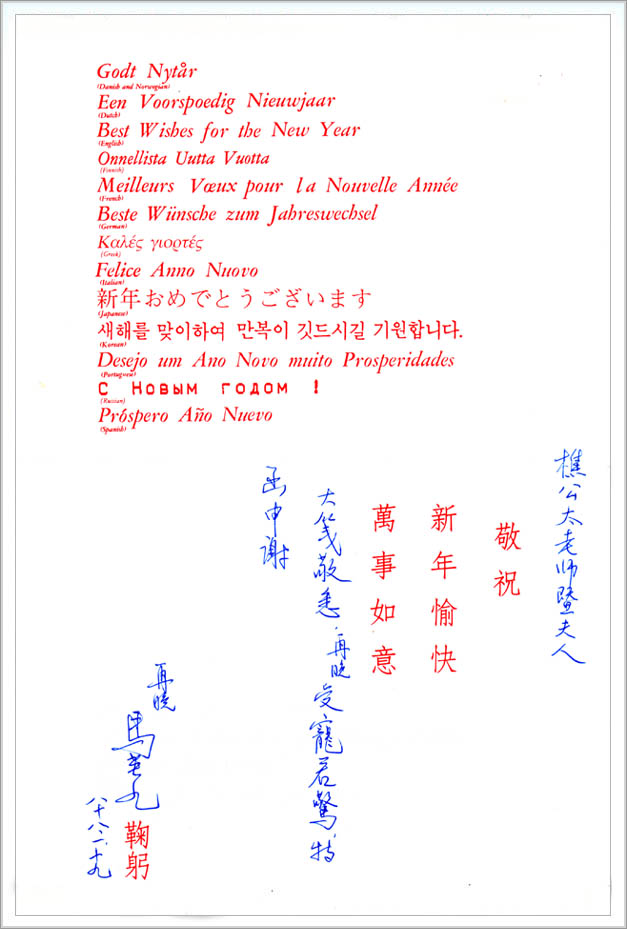 Godt Nytår
(Danish and Norwegian)
Een Voorspoedig Nieuwjaar
(Dutch)
Best Wishes for the New Year
(English)
Onnellista Uutta Vuotta
(Finnish)
Meilleurs Vœux pour la Nouvelle Année
(French)
Beste Wünsche zum Jahreswechsel
(German)
Καλές γιορτές
(Greek)
Felice Anno Nuovo
(Italian)
新年おめでとうございます
(Japanese)
새해를 맞이하여 만복이 깃드시길 기원합니다.
(Korean)
Desejo um Ano Novo muito Prosperidades
(Portuguese)
С Новым годом !
(Russian)
Próspero Año Nuevo
(Spanish)
樵公太老师暨夫人
敬祝
新年愉快
萬事如意
大箋敬悉，再晚受寵若驚，特
函申謝
再晚
馬英九鞠躬
八十八、二、十九